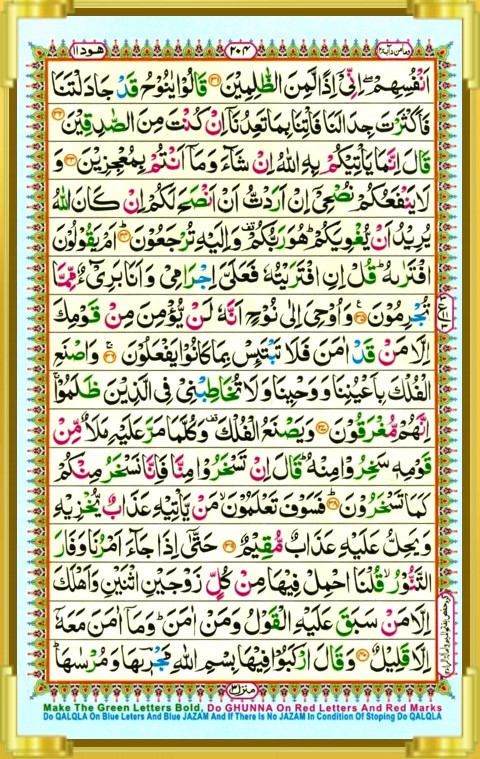 هود ١١
٢٠٤
وما من دآبة ١٢
اَنْفُسِهِمْ ۖۚ اِنِّیْۤ اِذًا لَّمِنَ الظّٰلِمِیْنَ ﴿۳۱﴾ قَالُوْا یٰنُوْحُ قَدْ جَادَلْتَنَا
فَاَكْثَرْتَ جِدَالَنَا فَاْتِنَا بِمَا تَعِدُنَاۤ اِنْ كُنْتَ مِنَ الصّٰدِقِیْنَ ﴿۳۲﴾
قَالَ اِنَّمَا یَاْتِیْكُمْ بِهِ اللّٰهُ اِنْ شَآءَ وَمَاۤ اَنْتُمْ بِمُعْجِزِیْنَ ﴿۳۳﴾ وَ
لَا یَنْفَعُكُمْ نُصْحِیْۤ اِنْ اَرَدْتُّ اَنْ اَنْصَحَ لَكُمْ اِنْ كَانَ اللّٰهُ
یُرِیْدُ اَنْ یُّغْوِیَكُمْ ؕ هُوَ رَبُّكُمْ ۫ وَاِلَیْهِ تُرْجَعُوْنَ ﴿۳۴﴾ اَمْ یَقُوْلُوْنَ
افْتَرٰىهُ ؕ قُلْ اِنِ افْتَرَیْتُهٗ فَعَلَیَّ اِجْرَامِیْ وَاَنَا بَرِیْٓءٌ مِّمَّا
تُجْرِمُوْنَ ﴿۳۵﴾ وَاُوْحِیَ اِلٰی نُوْحٍ اَنَّهٗ لَنْ یُّؤْمِنَ مِنْ قَوْمِكَ
اِلَّا مَنْ قَدْ اٰمَنَ فَلَا تَبْتَىِٕسْ بِمَا كَانُوْا یَفْعَلُوْنَ ﴿۳۶﴾ وَاصْنَعِ
الْفُلْكَ بِاَعْیُنِنَا وَوَحْیِنَا وَلَا تُخَاطِبْنِیْ فِی الَّذِیْنَ ظَلَمُوْا ۚ
اِنَّهُمْ مُّغْرَقُوْنَ ﴿۳۷﴾ وَیَصْنَعُ الْفُلْكَ ۫ وَكُلَّمَا مَرَّ عَلَیْهِ مَلَاٌ مِّنْ
قَوْمِهٖ سَخِرُوْا مِنْهُ ؕ قَالَ اِنْ تَسْخَرُوْا مِنَّا فَاِنَّا نَسْخَرُ مِنْكُمْ
كَمَا تَسْخَرُوْنَ ﴿۳۸﴾ فَسَوْفَ تَعْلَمُوْنَ ۙ مَنْ یَّاْتِیْهِ عَذَابٌ یُّخْزِیْهِ
وَیَحِلُّ عَلَیْهِ عَذَابٌ مُّقِیْمٌ ﴿۳۹﴾ حَتّٰۤی اِذَا جَآءَ اَمْرُنَا وَفَارَ
التَّنُّوْرُ ۙ قُلْنَا احْمِلْ فِیْهَا مِنْ كُلٍّ زَوْجَیْنِ اثْنَیْنِ وَاَهْلَكَ
اِلَّا مَنْ سَبَقَ عَلَیْهِ الْقَوْلُ وَمَنْ اٰمَنَ ؕ وَمَاۤ اٰمَنَ مَعَهٗۤ
اِلَّا قَلِیْلٌ ﴿۴۰﴾ وَقَالَ ارْكَبُوْا فِیْهَا بِسْمِ اللّٰهِ مَجْرٖىهَا وَمُرْسٰىهَا ؕ
منزل ٣
Make The Green Letters Bold, Do GHUNNA On Red Letters And Red Marks
Do QALQLA On Blue Leters And Blue JAZAM And If There Is No JAZAM In Condition Of Stoping Do QALQLA